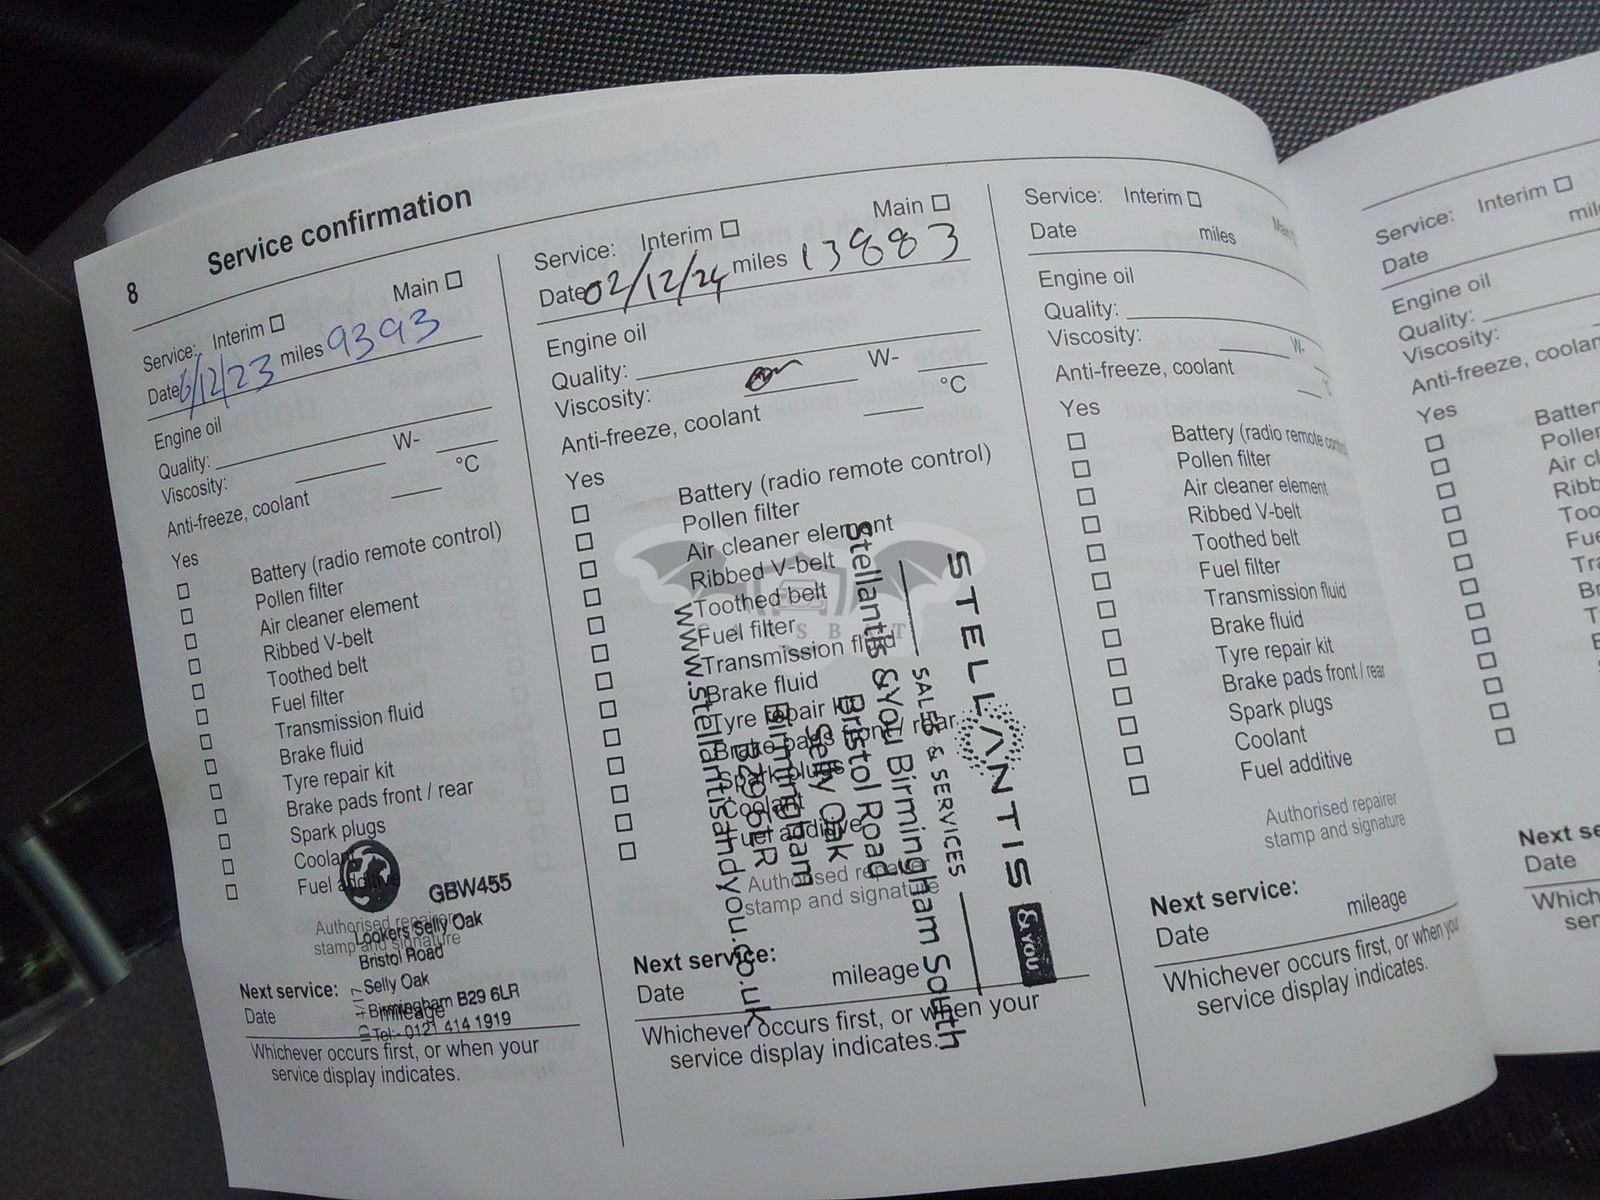 8
Service confirmation
Service: Interim ☐ Main ☐
Date 6/12/23 miles 9393
Engine oil
Quality:
Viscosity: W-
Anti-freeze, coolant °C
Yes
☐ Battery (radio remote control)
☐ Pollen filter
☐ Air cleaner element
☐ Ribbed V-belt
☐ Toothed belt
☐ Fuel filter
☐ Transmission fluid
☐ Brake fluid
☐ Tyre repair kit
☐ Brake pads front / rear
☐ Spark plugs
☐ Coolant
☐ Fuel additive
GBW455
Authorised repairer
stamp and signature
Lookers Selly Oak
Bristol Road
Selly Oak
Birmingham B29 6LR
Tel:- 0121 414 1919
Next service:
Date mileage
Whichever occurs first, or when your
service display indicates.
Service: Interim ☐ Main ☐
Date 02/12/24 miles 13883
Engine oil
Quality:
Viscosity: W-
Anti-freeze, coolant °C
Yes
☐ Battery (radio remote control)
☐ Pollen filter
☐ Air cleaner element
☐ Ribbed V-belt
☐ Toothed belt
☐ Fuel filter
☐ Transmission fluid
☐ Brake fluid
☐ Tyre repair kit
☐ Brake pads front / rear
☐ Spark plugs
☐ Coolant
☐ Fuel additive
Authorised repairer
stamp and signature
STELLANTIS &YOU
SALES & SERVICES
Stellantis &You Birmingham South
Bristol Road
Selly Oak
Birmingham
B29 6LR
www.stellantisandyou.co.uk
Next service:
Date mileage
Whichever occurs first, or when your
service display indicates.
Service: Interim ☐ Main
Date miles
Engine oil
Quality:
Viscosity: W-
Anti-freeze, coolant
Yes
☐ Battery (radio remote control)
☐ Pollen filter
☐ Air cleaner element
☐ Ribbed V-belt
☐ Toothed belt
☐ Fuel filter
☐ Transmission fluid
☐ Brake fluid
☐ Tyre repair kit
☐ Brake pads front / rear
☐ Spark plugs
☐ Coolant
☐ Fuel additive
Authorised repairer
stamp and signature
Next service:
Date mileage
Whichever occurs first, or when you
service display indicates.
Service: Interim ☐
Date mil
Engine oil
Quality:
Viscosity:
Anti-freeze, coolan
Yes
☐ Batter
☐ Poller
☐ Air cl
☐ Ribb
☐ Too
☐ Fue
☐ Tra
☐ Br
☐ T
Next se
Date
Which
ser